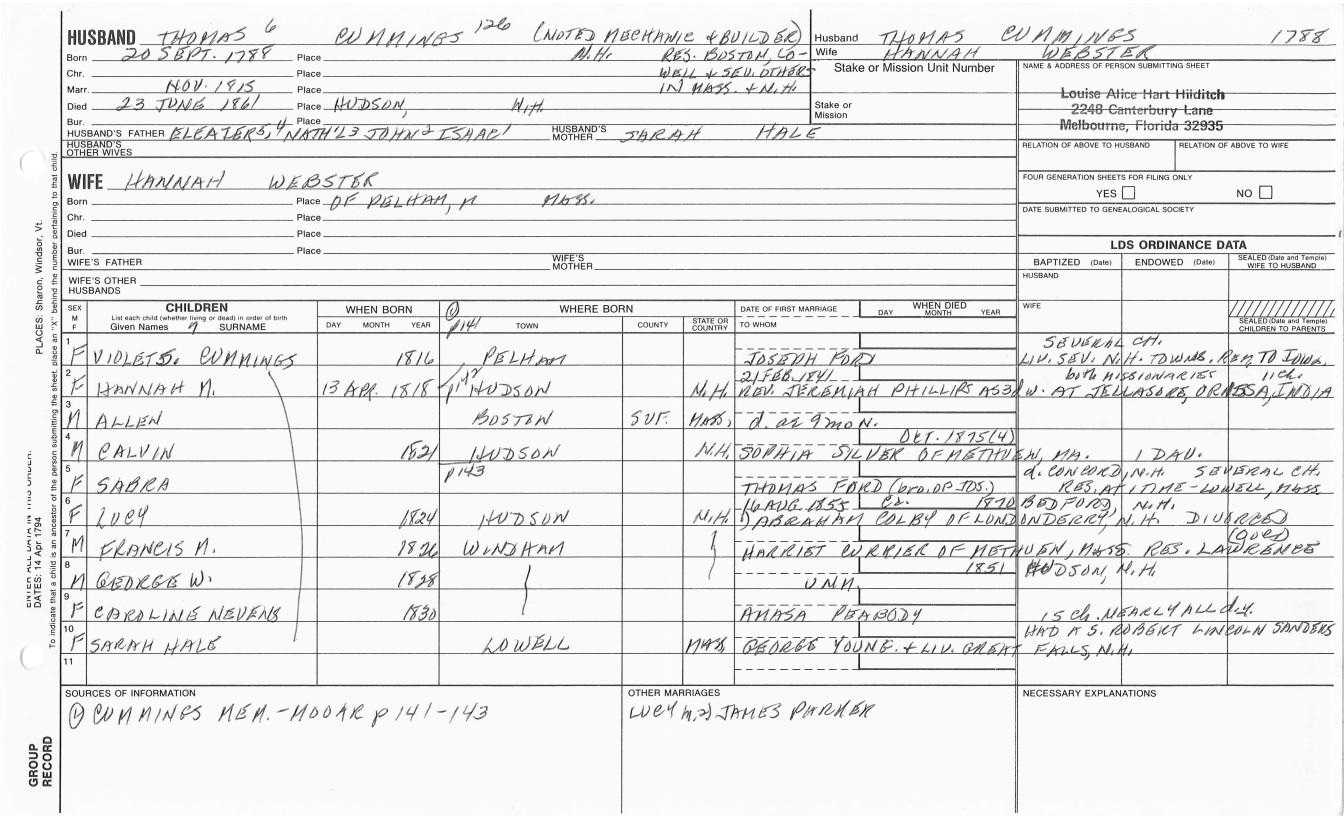 HUSBAND THOMAS 6 CUMMINGS 126 (NOTED MECHANIC & BUILDER)
Born 20 SEPT. 1788 Place N.H. RES. BOSTON, LO-
Chr. Place WELL & SEV. OTHERS
Marr. NOV. 1815 Place IN MASS. & N.H.
Died 23 JUNE 1861 Place HUDSON, N.H.
Bur. Place
HUSBAND'S FATHER ELEATER5, 4 NATH'L3 JOHN2 ISAAC1 HUSBAND'S MOTHER SARAH HALE
HUSBAND'S OTHER WIVES
WIFE HANNAH WEBSTER
Born Place OF PELHAM, MASS.
Chr. Place
Died Place
Bur. Place
WIFE'S FATHER WIFE'S MOTHER
WIFE'S OTHER HUSBANDS
Husband THOMAS CUMMINGS 1788
Wife HANNAH WEBSTER
Stake or Mission Unit Number
Stake or Mission
NAME & ADDRESS OF PERSON SUBMITTING SHEET
Louise Alice Hart Hilditch
2248 Canterbury Lane
Melbourne, Florida 32935
RELATION OF ABOVE TO HUSBAND RELATION OF ABOVE TO WIFE
FOUR GENERATION SHEETS FOR FILING ONLY
YES NO
DATE SUBMITTED TO GENEALOGICAL SOCIETY
LDS ORDINANCE DATA
BAPTIZED (Date) ENDOWED (Date) SEALED (Date and Temple) WIFE TO HUSBAND
HUSBAND
WIFE
SEALED (Date and Temple) CHILDREN TO PARENTS
SEX M F
CHILDREN
List each child (whether living or dead) in order of birth
Given Names SURNAME
WHEN BORN
DAY MONTH YEAR
(1) p141
WHERE BORN
TOWN COUNTY STATE OR COUNTRY
DATE OF FIRST MARRIAGE
TO WHOM
WHEN DIED
DAY MONTH YEAR
1 F VIOLET S. CUMMINGS 1816 PELHAM JOSEPH FORD SEVERAL CH. LIV. SEV. N.H. TOWNS. REM. TO IOWA.
2 F HANNAH M. 13 APR. 1818 p142 HUDSON N.H. 21 FEB. 1841 REV. JEREMIAH PHILLIPS AS 3D W. AT JELLASORE, ORISSA, INDIA both MISSIONARIES 11 ch.
3 M ALLEN BOSTON SUF. MASS, d. ae 9 mo N.
4 M CALVIN 1821 HUDSON N.H. OCT. 1875(4) SOPHIA SILVER OF METHUEN, MA. 1 DAU.
5 F SABRA p143 THOMAS FORD (bro. OF JOS.) d. CONCORD, N.H. SEVERAL CH. RES. AT 1 TIME-LOWELL, MASS
6 F LUCY 1824 HUDSON N.H. 16 AUG 1855 ca. 1870 BEDFORD, N.H. 1) ABRAHAM COLBY OF LONDONDERRY, N.H. DIVORCED
7 M FRANCIS M. 1826 WINDHAM HARRIET CURRIER OF METHUEN, MASS. RES. LAWRENCE
8 M GEORGE W. 1828 UNM. 1851 HUDSON, N.H.
9 F CAROLINE NEVENS 1830 AMASA PEABODY 15 ch. NEARLY ALL d.y.
10 F SARAH HALE LOWELL MASS, GEORGE YOUNG. + LIV. GREAT FALLS, N.H. HAD A S. ROBERT LINCOLN SANDERS
11
SOURCES OF INFORMATION
(1) CUMMINGS MEM.-MOOAR p 141-143
OTHER MARRIAGES
LUCY m. 2) JAMES PARKER
NECESSARY EXPLANATIONS
PLACES: Sharon, Windsor, Vt.
ENTER ALL DATA IN THIS ORDER:
DATES: 14 Apr 1794
To indicate that a child is an ancestor of the person submitting the sheet, place an "X" behind the number pertaining to that child.
GROUP RECORD